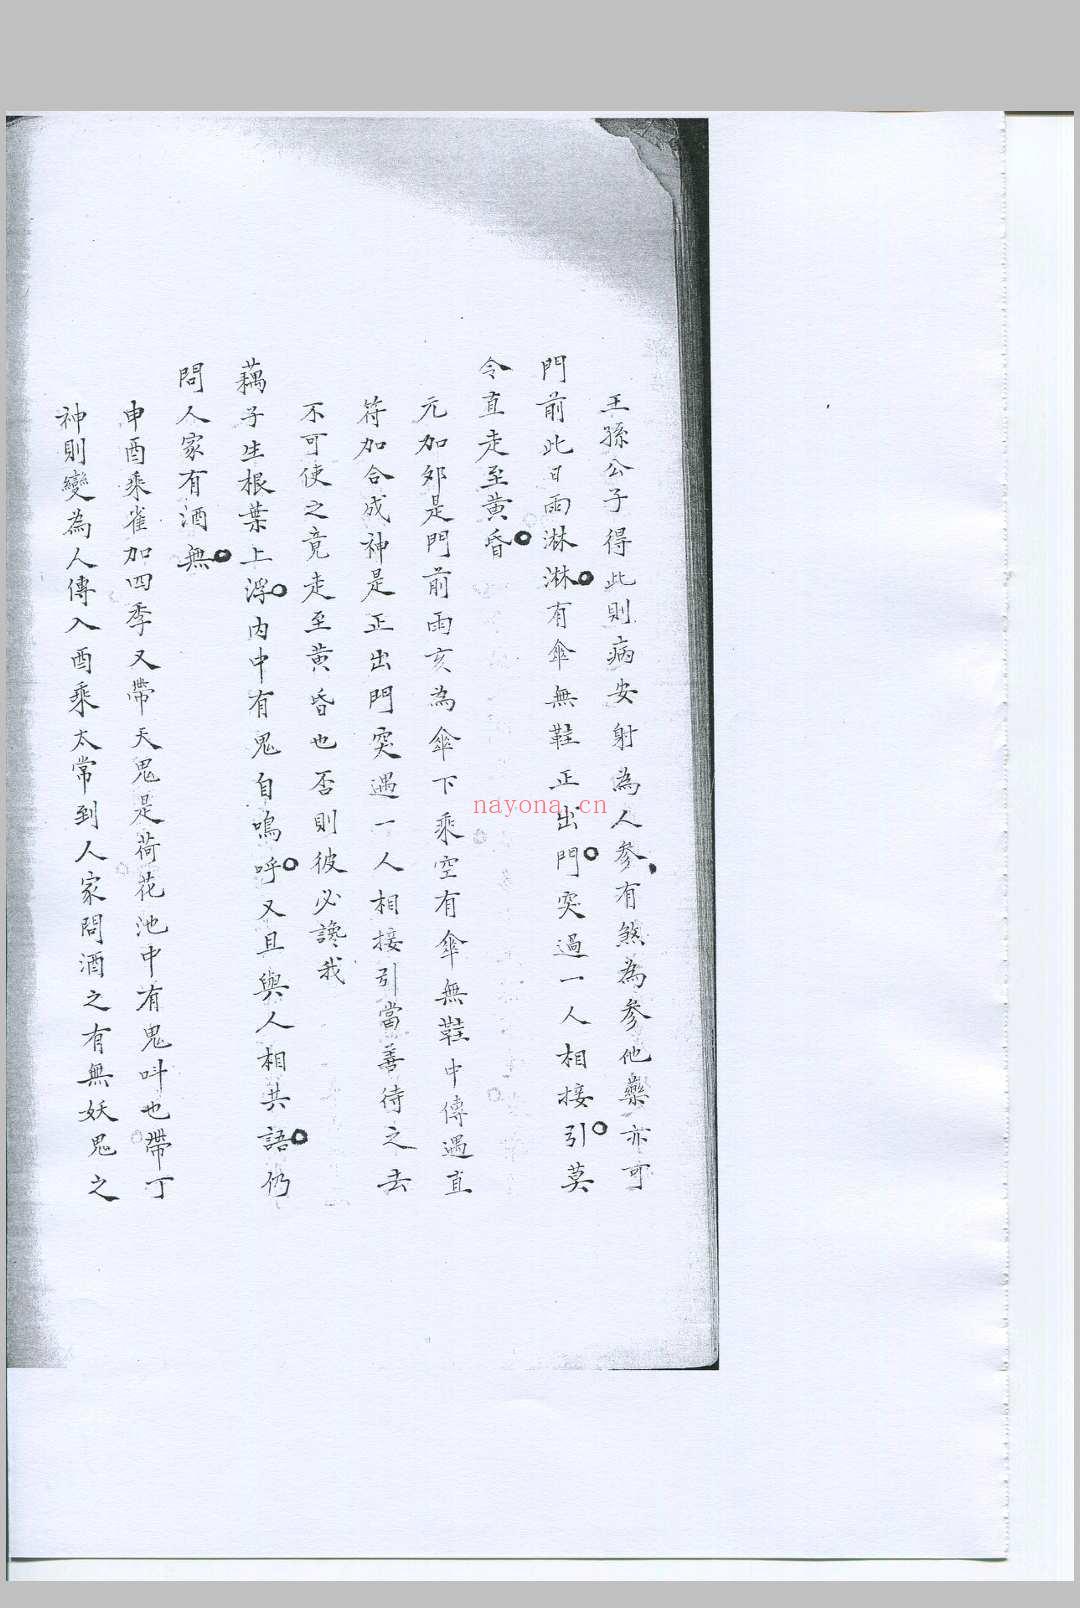 王孫公子得此則病安射為人參有煞為參他藥亦可
門前此日雨淋淋有傘無鞋正出門突過一人相接引莫
令直走至黄昏
元加卯是門前雨亥為傘下乘空有傘無鞋中傳遇直
符加合成神是正出門突遇一人相接引當善待之去
不可使之竟走至黄昏也否則彼必讒我
藕子生根葉上浮内中有鬼自鳴呼又且與人相共語仍
問人家有酒無
申酉乘雀加四季又帶天鬼是荷花池中有鬼叫也帶丁
神則變為人傳入酉乘太常到人家問酒之有無妖鬼之
nayona.cn